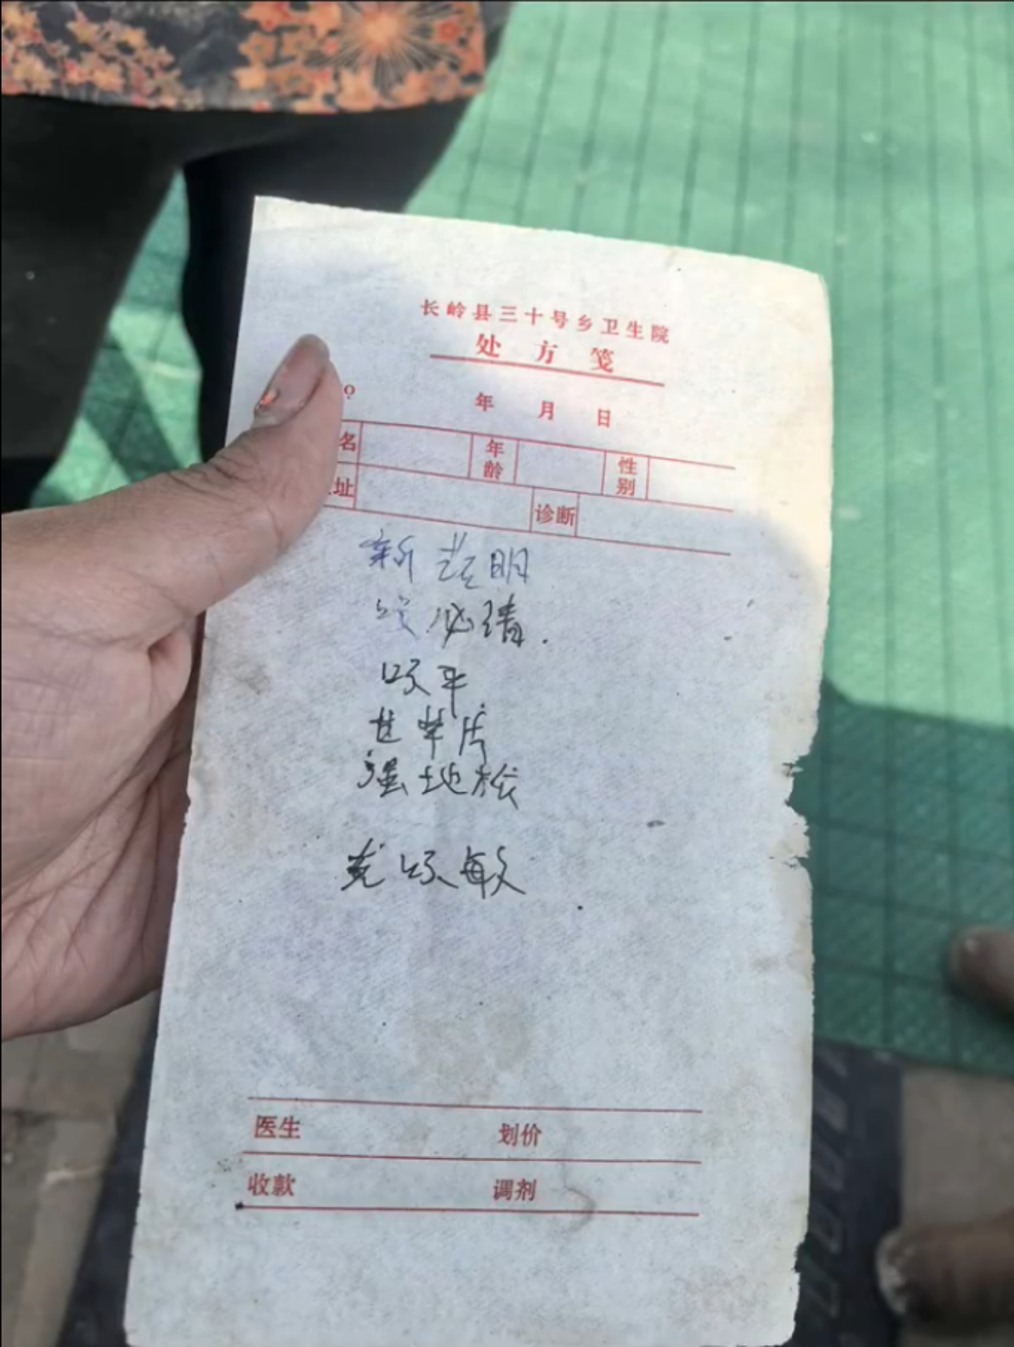 长岭县三十号乡卫生院
处方笺
年 月 日
名 年龄 性别
址 诊断
新芷明
咳必清.
咳平
甘草片
强地松
克咳敏
医生 划价
收款 调剂